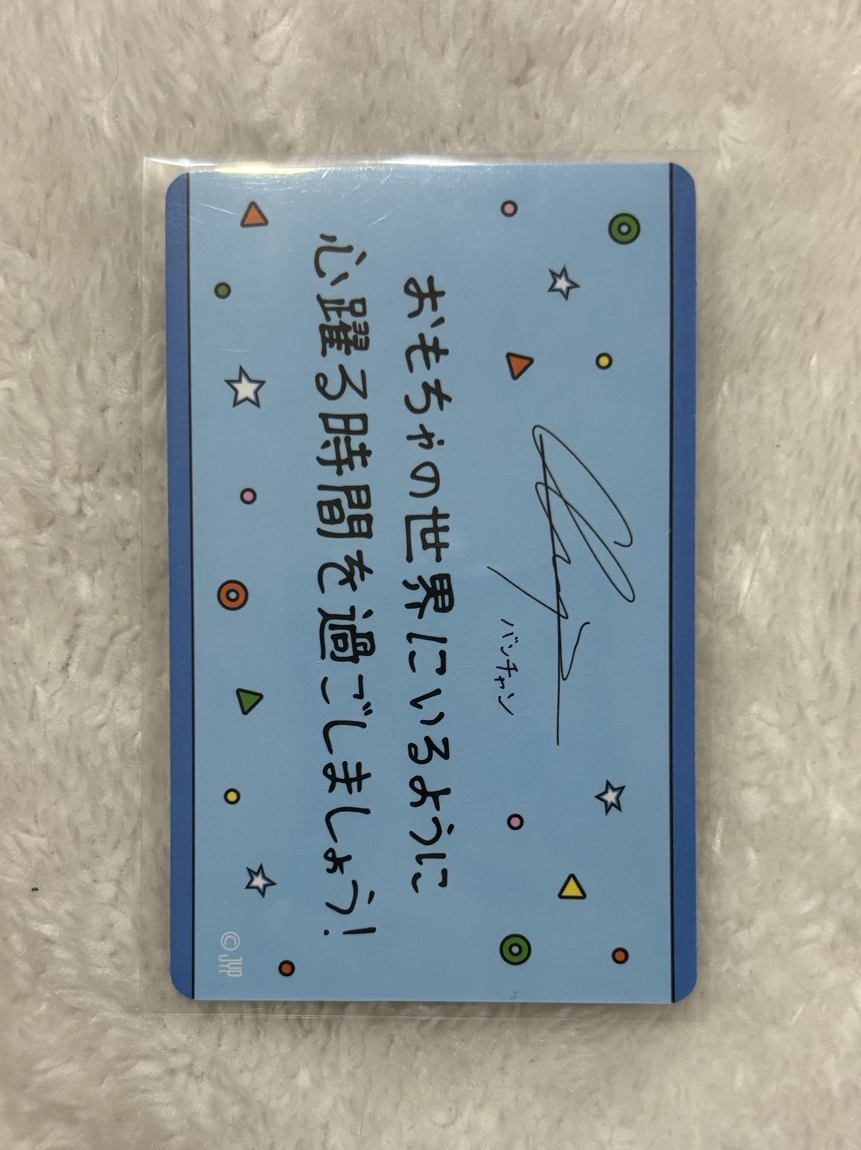 バンチャン
おもちゃの世界にいるように
心躍る時間を過ごしましょう!
©JYP